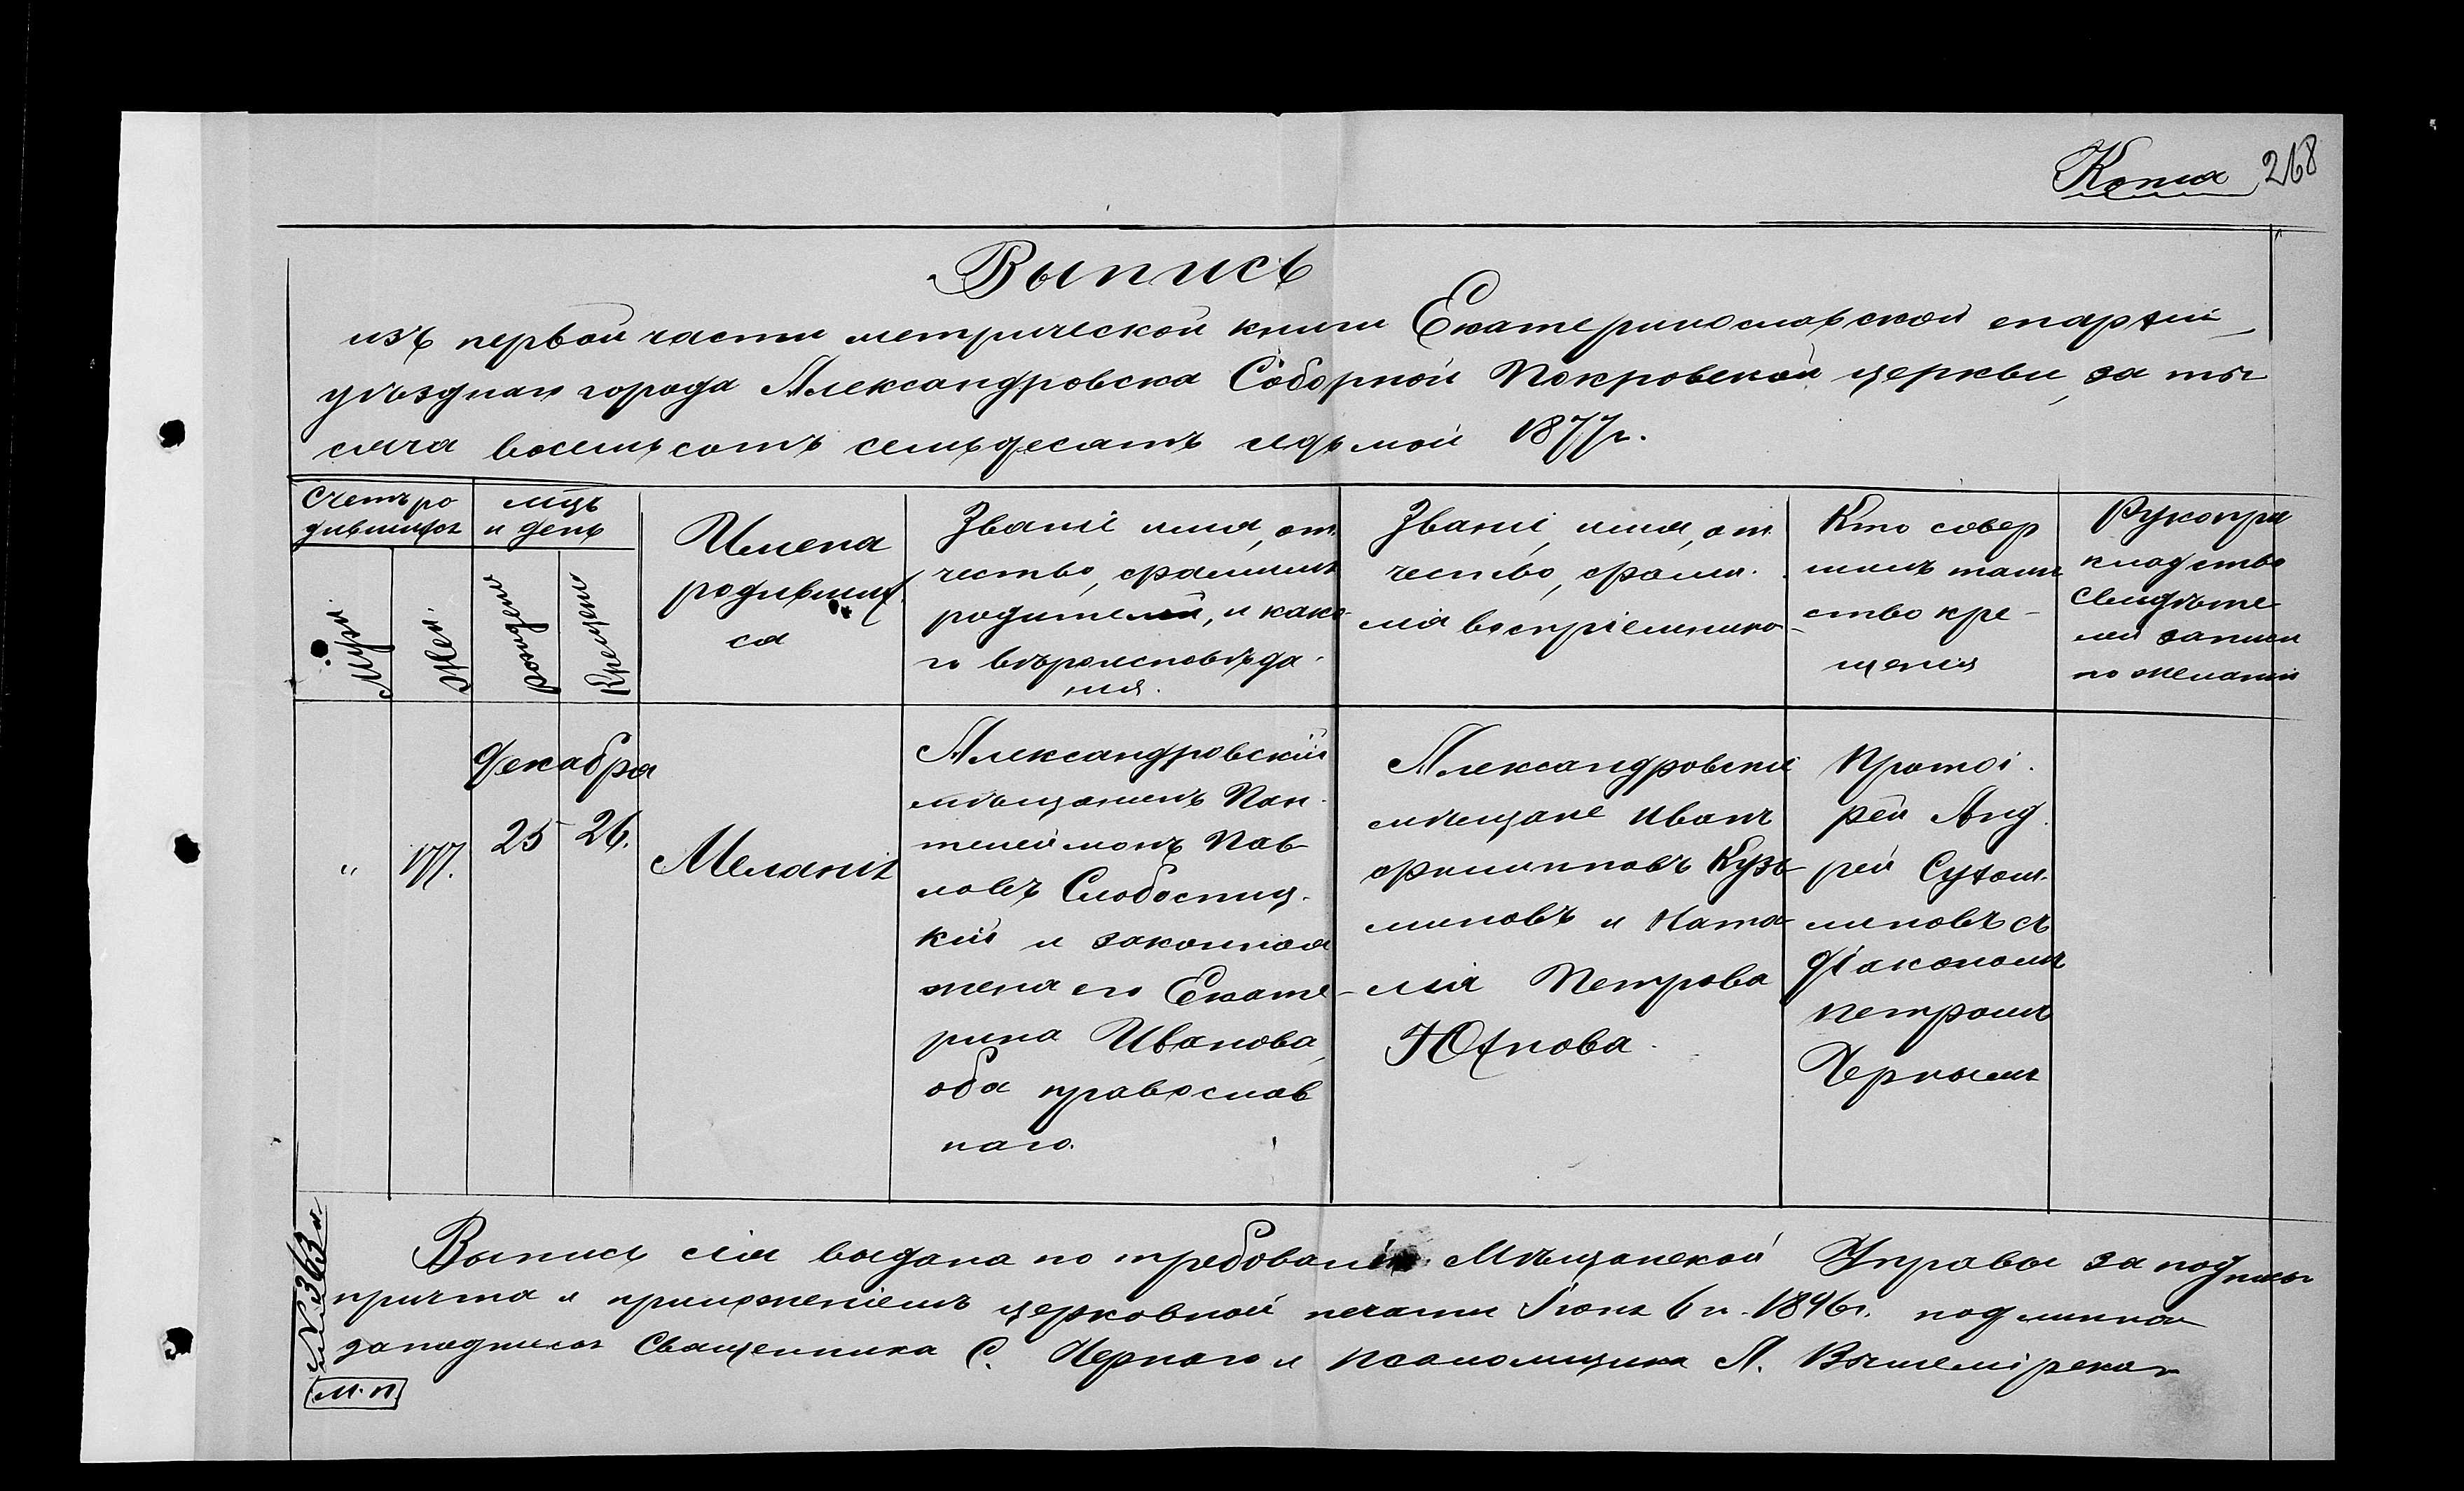 Копия 268
Выпись
изъ первой части метрической книги Екатеринославской епархіи
уѣзднаго города Александровска Соборной Покровской церкви, за ты
сяча восемьсотъ семьдесятъ седьмой 1877 г.
Счетъ ро
дившихся
Муж.
Жен.
мцъ
и день
рожденія
Крещенія
Имена
родивших
ся
Званіе имя, от
чество, фамилія
родителей, и како
го вѣроисповѣда
нія.
Званіе, имя, от
чество, фами-
лія воспріемнико-
Кто совер
шилъ таин
ство кре-
щенія
Рукопри
кладство
свидѣте
лей записи
по желанію
Декабря
"
177.
25
26.
Меланія
Александровскій
мѣщанинъ Пан-
телеймонъ Пав-
ловъ Слобостиц-
кій и законная
жена его Екате-
рина Иванова,
оба православ
наго.
Александровскіе
мѣщане Иванъ
Филипповъ Кузь-
миновъ и Ната-
лія Петрова
Юхнова.
Протоі-
рей Анд-
рей Сухом-
линовъ съ
Діакономъ
Петромъ
Чернымъ
Выпись сія выдана по требованію Мѣщанской Управы за подписью
причта и приложеніемъ церковной печати Іюня 6 д. 1896 г. подлинная
за подписью Священника С. Чернаго и Псаломщика А.
№ 363
М. П.